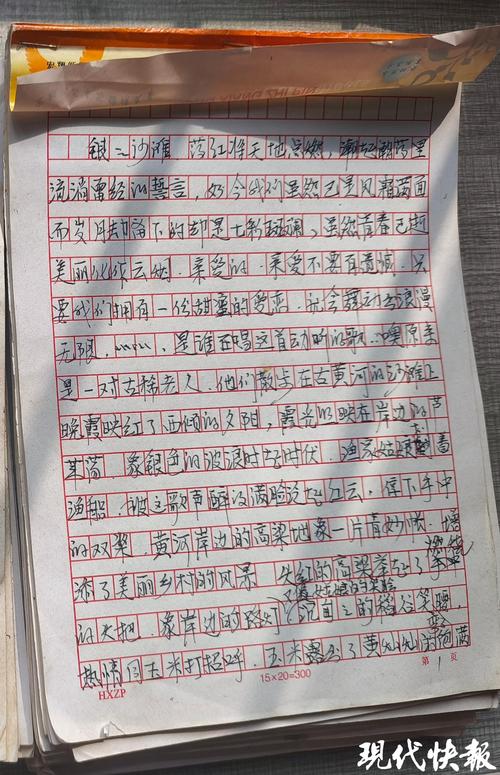 银色沙滩 落红将天地
流淌曾经的誓言，如今我们虽然已是风霜两面
而岁月却留下的却是七彩斑斓，虽然青春已越
美丽化作云烟．亲爱的．亲爱不要有遗憾．只
要我们拥有一份甜蜜的爱恋．就会舞动出浪漫
无限，……，是谁在唱这首动听的歌…噢原来
是一对古稀老人．他们散步在古黄河的沙滩上
晚霞映红了西倾的夕阳，霞光的映在岸边的芦
苇荡．象银色的波浪时起时伏．渔家姑娘着
渔船．被这歌声醉没满脸泛起红云，停下手中
的双桨．黄河岸边的高粱地象一片青纱帐．增
添了美丽乡村的风景．火红的高粱举起了燃烧
的火把．象岸边的路灯．沉甸甸的稻谷笑弯
热情向玉米打招呼．玉米露出了黄
第1页
15×20=300
HXZP
现代快報